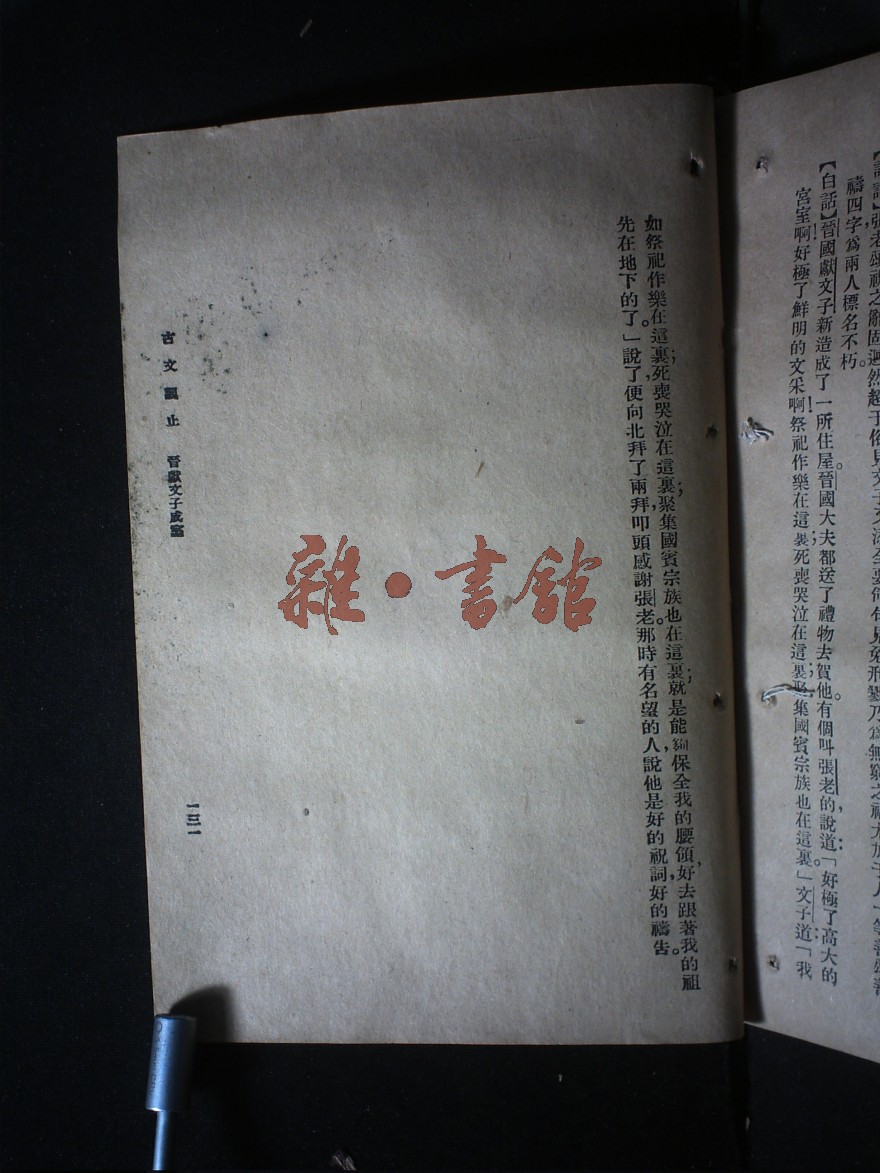 禱四字爲兩人標名不朽。
【白話】晉國獻文子新造成了一所住屋。晉國大夫都送了禮物去賀他。有個叫張老的，說道：「好極了高大的
宮室啊！好極了鮮明的文采啊！祭祀作樂在這裏；死喪哭泣在這裏；聚集國賓宗族也在這裏。」文子道：「我
如祭祀作樂在這裏；死喪哭泣在這裏；聚集國賓宗族也在這裏；就是能夠保全我的腰領，好去跟著我的祖
先在地下的了。」說了，便向北拜了兩拜，叩頭感謝張老。那時有名望的人，說他是好的祝詞，好的禱告。
古文觀止 晉獻文子成室
一三一
雜·書館